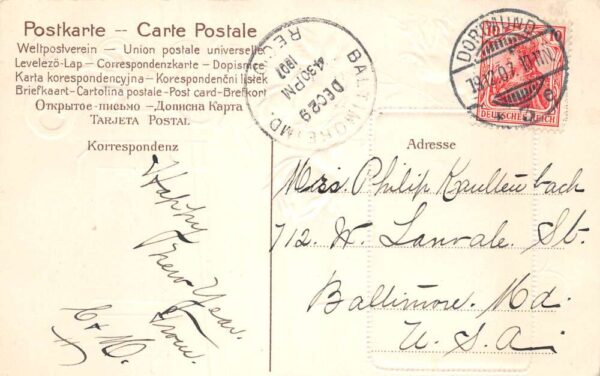 Postkarte — Carte Postale
Weltpostverein — Union postale universelle
Levelező-Lap — Correspondenzkarte — Dopisnice
Karta korespondencyjna — Korespondenční lístek
Briefkaart - Cartolina postale - Post card - Brefkort
Открытое письмо — Дописна Карта
Tarjeta Postal
Korrespondenz
Happy
New Year.
From
C & M.
BALTIMORE, MD.
DEC 29
4-30 PM
1907
REC'D
DORTMUND
19.12.07. 10-11
10
DEUTSCHES REICH
Adresse
Mrs. Philip Kaultenbach
712. W. Lanvale. St.
Baltimore. Md.
U. S. A.